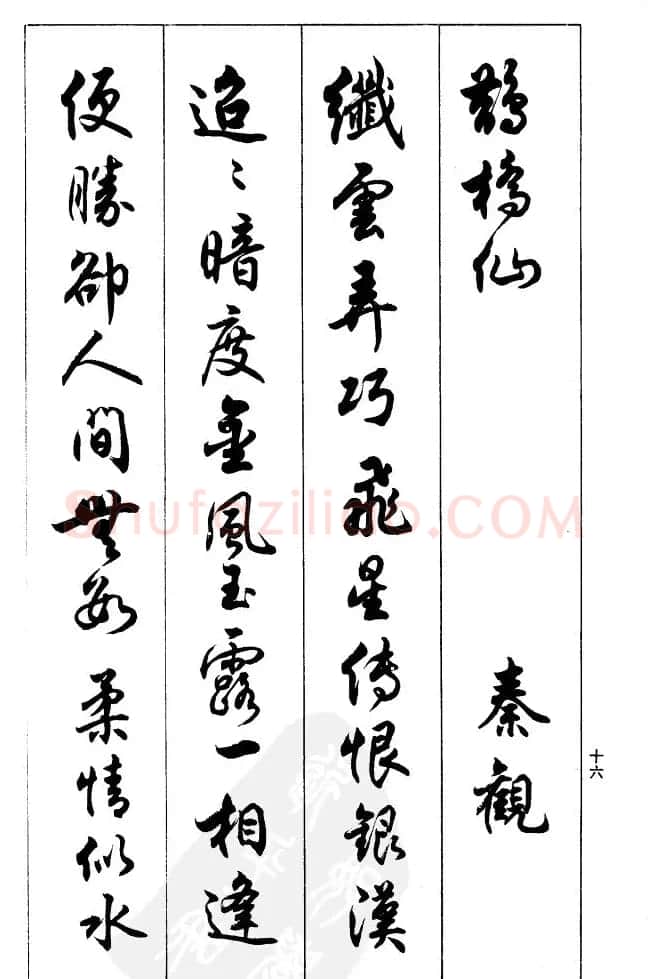 鵲橋仙 秦觀
纖雲弄巧飛星傳恨銀漢
迢〻暗度金風玉露一相逢
便勝卻人間無數柔情似水
十六
Shufaziliao.COM